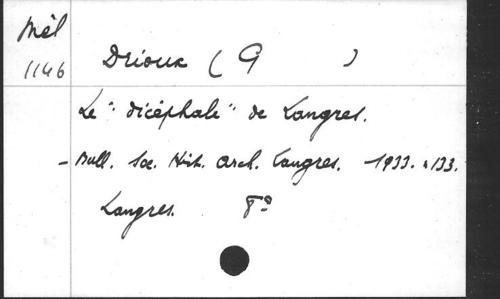 Mél
1146
Drioux ( G )
Le "dicéphale" de Langres.
- Bull. Soc. Hist. Arch. Langres. 1933. 133.
Langres. 8°